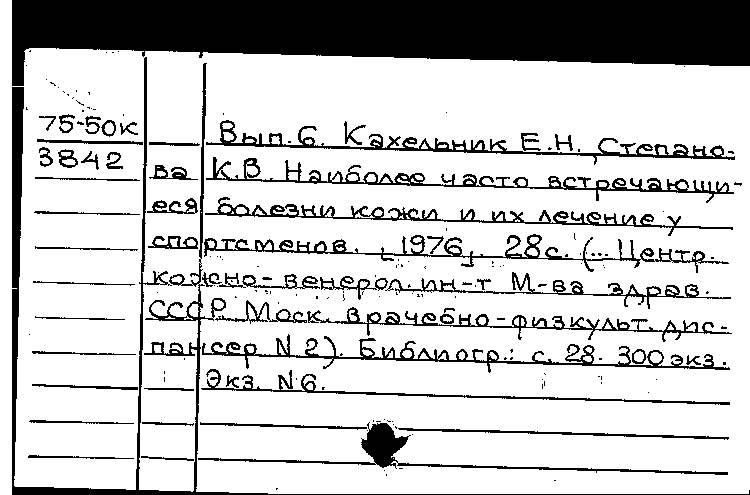 75-50к Вып.6. Кахельник Е.Н., Степано-
3842 ва К.В. Наиболее часто встречающи-
еся болезни кожи и их лечение у
спортсменов. [1976]. 28с. (... Центр.
кожно-венерол. ин-т М-ва здрав.
СССР. Моск. врачебно-физкульт. дис-
пансер N 2). Библиогр.: с. 28. 300 экз.
Экз. N6.